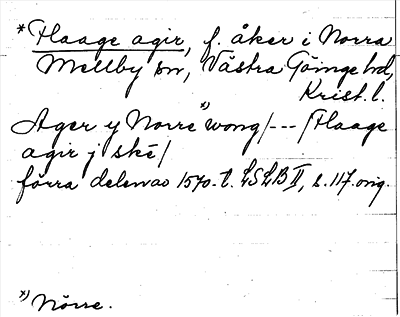 *Haage agir, f. åker i Norra
Mellby sn, Västra Göinge hd,
Krist. l.
Ager y Norre x) wong/---/Haage
agir j ské/
förra delen av 1570-t. LSLB II, s. 117. orig.
x) Nörre.